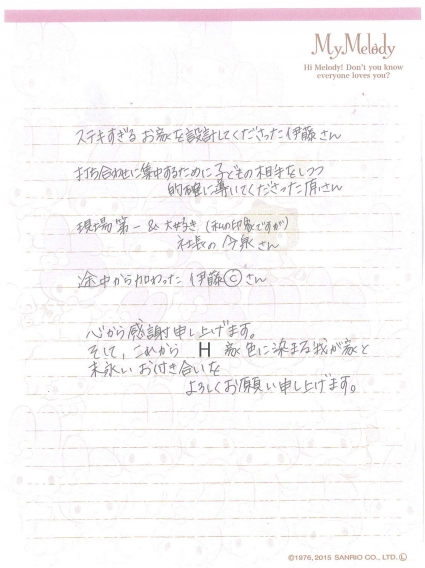 My Melody
Hi Melody! Don't you know
everyone loves you?
ステキすぎる お家を設計してくださった伊藤さん
打ち合わせに集中するために子どもの相手をしつつ
的確に導いてくださった 原さん
現場第一&大好き (私の印象ですが)
社長の 今泉さん
途中から加わった 伊藤Ⓒさん
心から感謝申し上げます。
そして、これから H 家色に染まる我が家と
末永い お付き合いを
よろしくお願い申し上げます。
©1976, 2015 SANRIO CO., LTD. Ⓛ